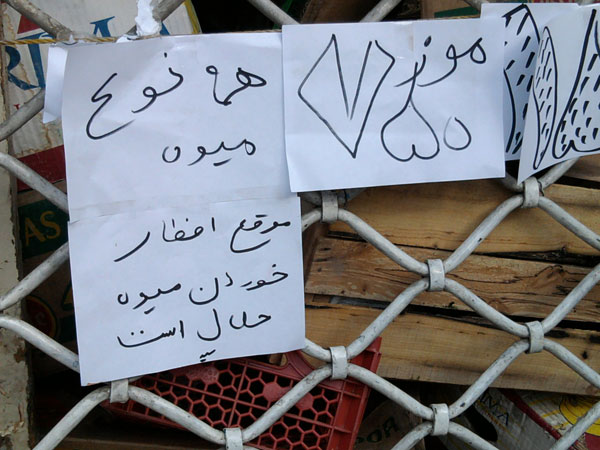 همه نوع
میوه
موقع افطار
خوردن میوه
حلال است
موز
۷۵۰